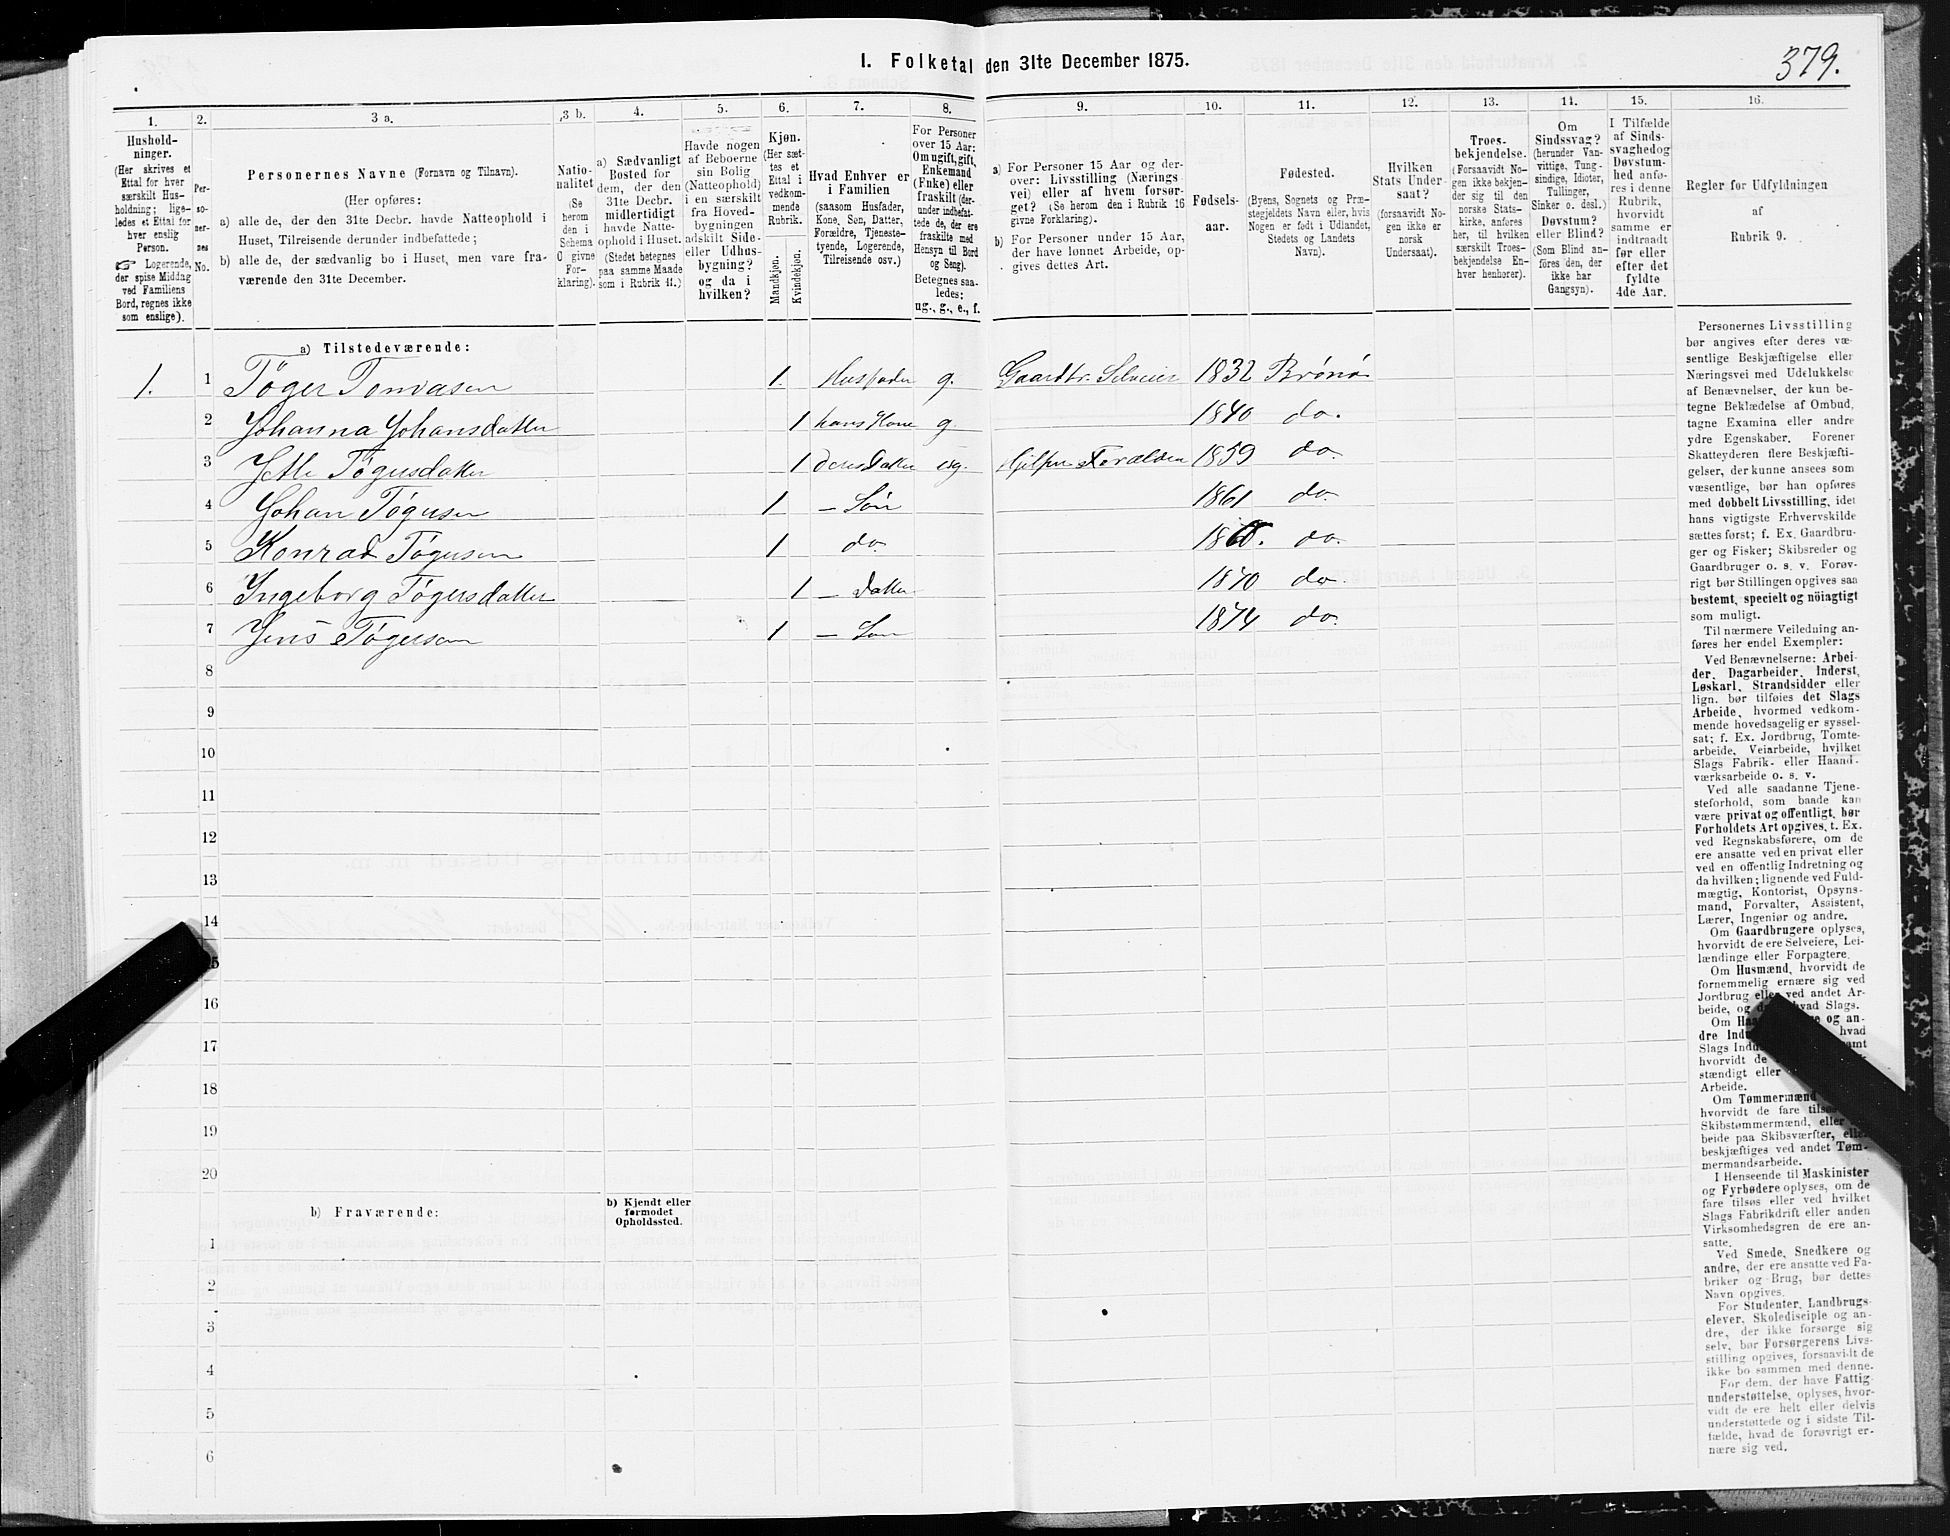 I. Folketal den 31te December 1875.
379.
1.
Hushold-
ninger.
(Her skrives et
Ettal for hver
særskilt Hus-
holdning; lige-
ledes et Ettal for
hver enslig
Person.
☞ Logerende,
der spise Middag
ved Familiens
Bord, regnes ikke
som enslige).
2.
Per-
so-
ner-
nes
No.
3 a.
Personernes Navne (Fornavn og Tilnavn).
(Her opføres:
a) alle de, der den 31te Decbr. havde Natteophold i
Huset, Tilreisende derunder indbefattede;
b) alle de, der sædvanlig bo i Huset, men vare fra-
værende den 31te December.
3 b.
Natio-
nalitet
(Se
herom
den i
Schema
C givne
For-
klaring).
4.
a) Sædvanligt
Bosted for
dem, der den
31te Decbr.
midlertidigt
havde Natte-
ophold i Huset.
(Stedet betegnes
paa samme Maade
som i Rubrik 11.)
5.
Havde nogen
af Beboerne
sin Bolig
(Natteophold)
i en særskilt
fra Hoved-
bygningen
adskilt Side-
eller Udhus-
bygning?
og da i
hvilken?
6.
Kjøn.
(Her sæt-
tes et
Ettal i
vedkom-
mende
Rubrik.
Mandkjøn.
Kvindekjøn.
7.
Hvad Enhver er
i Familien
(saasom Husfader,
Kone, Søn, Datter,
Forældre, Tjeneste-
tyende, Logerende,
Tilreisende osv.)
8.
For Personer
over 15 Aar:
Om ugift, gift,
Enkemand
(Enke) eller
fraskilt (der-
under indbefat-
tede de, der ere
fraskilte med
Hensyn til Bord
og Seng).
Betegnes saa-
ledes:
ug., g., e., f.
9.
a) For Personer 15 Aar og der-
over: Livsstilling (Nærings-
vei) eller af hvem forsør-
get? (Se herom den i Rubrik 16
givne Forklaring).
b) For Personer under 15 Aar,
der have lønnet Arbeide, op-
gives dettes Art.
10.
Fødsels-
aar.
11.
Fødested.
(Byens, Sognets og Præ-
stegjeldets Navn eller, hvis
Nogen er født i Udlandet,
Stedets og Landets
Navn).
12.
Hvilken
Stats Under-
saat?
(forsaavidt No-
gen ikke er
norsk
Undersaat).
13.
Troes-
bekjendelse.
(Forsaavidt No-
gen ikke bekjen-
der sig til den
norske Stats-
kirke, anføres
her, til hvilken
særskilt Troes-
bekjendelse En-
hver henhører).
14.
Om
Sindssvag?
(herunder Van-
vittige, Tung-
sindige, Idioter,
Tullinger,
Sinker o. desl.)
Døvstum?
eller Blind?
(Som Blind an-
føres den, der
ikke har
Gangsyn).
15.
I Tilfælde
af Sinds-
svaghed og
Døvstum-
hed anfø-
res i denne
Rubrik,
hvorvidt
samme er
indtraadt
før eller
efter det
fyldte
4de Aar.
16.
Regler for Udfyldningen
af
Rubrik 9.
a) Tilstedeværende:
1. 1 Tøger Tomasen 1. Husfader g. Gaardbr. Selveier 1832 Brønø
2 Johanna Johansdatter 1 hans Kone g. 1840 do.
3 Jette Tøgersdatter 1 deres Datter ug. Hjelper Forældre 1859 do.
4 Johan Tøgersen 1 – Søn 1861 do.
5 Konrad Tøgersen 1 do. do.
6 Ingeborg Tøgersdatter 1 – Datter 1870 do.
7 Jens Tøgersen 1 – Søn 1874 do.
8
9
10
11
12
13
14
16
17
18
19
20
b) Fraværende:
b) Kjendt eller
formodet
Opholdssted.
1
2
3
4
5
6
Personernes Livsstilling
bør angives efter deres væ-
sentlige Beskjæftigelse eller
Næringsvei med Udelukkelse
af Benævnelser, der kun be-
tegne Beklædelse af Ombud,
tagne Examina eller andre
ydre Egenskaber. Forener
Skatteyderen flere Beskjæfti-
gelser, der kunne ansees som
væsentlige, bør han opføres
med dobbelt Livsstilling, idet
hans vigtigste Erhvervskilde
sættes først; f. Ex. Gaardbru-
ger og Fisker; Skibsreder og
Gaardbruger o. s. v. Forøv-
rigt bør Stillingen opgives saa
bestemt, specielt og nöiagtigt
som muligt.
Til nærmere Veiledning an-
føres her endel Exempler:
Ved Benævnelserne: Arbei-
der, Dagarbeider, Inderst,
Løskarl, Strandsidder eller
lign. bør tilføies det Slags
Arbeide, hvormed vedkom-
mende hovedsagelig er syssel-
sat; f. Ex. Jordbrug, Tomte-
arbeide, Veiarbeide, hvilket
Slags Fabrik- eller Haand-
værksarbeide o. s. v.
Ved alle saadanne Tjene-
steforhold, som baade kan
være privat og offentligt, bør
Forholdets Art opgives, t. Ex.
ved Regnskabsførere, om de
ere ansatte ved en privat eller
ved en offentlig Indretning og
da hvilken; lignende ved Fuld-
mægtig, Kontorist, Opsyns-
mand, Forvalter, Assistent,
Lærer, Ingeniør og andre.
Om Gaardbrugere oplyses,
hvorvidt de ere Selveiere, Lei-
lændinge eller Forpagtere.
Om Husmænd, hvorvidt de
fornemmelig ernære sig ved
Jordbrug eller ved andet Ar-
beide, og hvad Slags.
Om og an-
dre hvad
Slags
hvorvidt de
stændigt eller
Arbeide.
Om Tømmermænd
hvorvidt de fare
Skibstømmermænd, eller
beide paa Skibsværfter, eller
beskjæftiges ved andet Tøm-
mermandsarbeide.
I Henseende til Maskinister
og Fyrbødere oplyses, om de
fare tilsøs eller ved hvilket
Slags Fabrikdrift eller anden
Virksomhedsgren de ere an-
satte.
Ved Smede, Snedkere og
andre, der ere ansatte ved Fa-
briker og Brug, bør dettes
Navn opgives.
For Studenter, Landbrugs-
elever, Skoledisciple og an-
dre, der ikke forsørge sig
selv, bør Forsørgerens Livs-
stilling opgives, forsaavidt de
ikke bo sammen med denne.
For dem, der have Fattig-
understøttelse, oplyses, hvor-
vidt de ere helt eller delvis
understøttede og i sidste Til-
fælde, hvad de forøvrigt er-
nære sig ved.